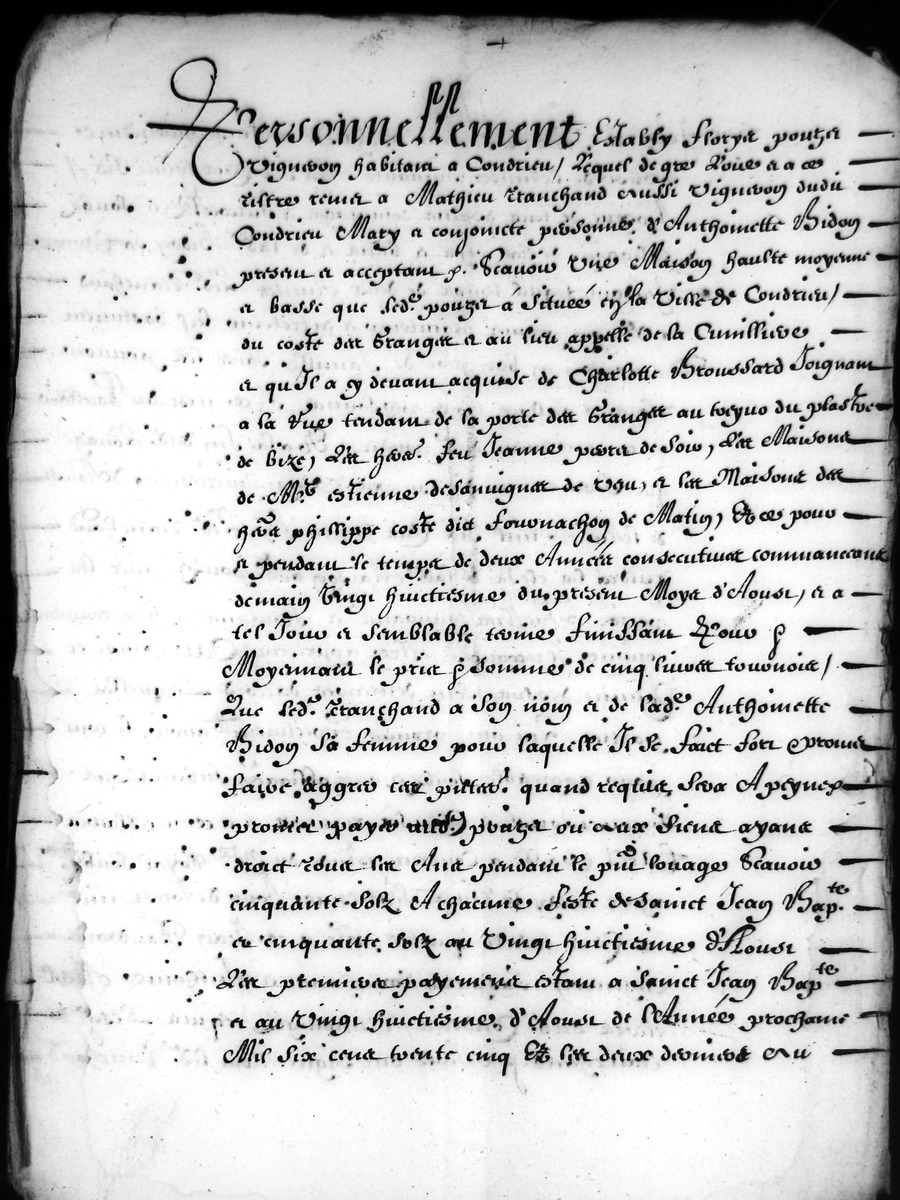 Personnellement Estably Florys pouzet
Vigneron habitant a Condrieu / Lequel de gre Loue et a ce
tiltre remet a Mathieu Tranchand aussi Vigneron dudit
Condrieu Mary et conjoincte personne d'Anthoinette Bidon
present et acceptant Scavoir Une Maison haulte moyenne
et basse que led. pouzet à située en la Ville de Condrieu /
du coste des Granges et au lieu appellé de la Cunilliere
et qu'Il a cy devant acquise de Charlotte Broussard Joignant
a la Rue tendant de la porte des Granges au du plastre
de bize, Les hers. feu Jeanne de Soir, Les Maisons
de Mre. estienne de Vent, et les Maisons des
hers phillippe coste dict fournachon de Matin, Et ce pour
et pendant le temps de deux Années consecutives commancant
demain Vingt huictiesme du present Moys d'Aoust, et a
tel Jour et semblable terme finissant
Moyennant le pris somme de cinq livres tournois /
Que led. Tranchand a son nom et de lade. Anthoinette
Bidon sa femme pour laquelle Il se faict fort promet
faire aggreer ces quand requis sera A peyne
promet payer pouzet ou aux siens ayans
droict tous les Ans pendant le pnt louage Scavoir
cinquante solz A chacune feste de Sainct Jean Bapte.
et cinquante solz au Vingt huictiesme d'Aoust
Les premiers payemens estant a Sainct Jean Bapte
et au Vingt huictiesme d'Aoust de l'Année prochaine
Mil six cens trente cinq Et les deux derniers au